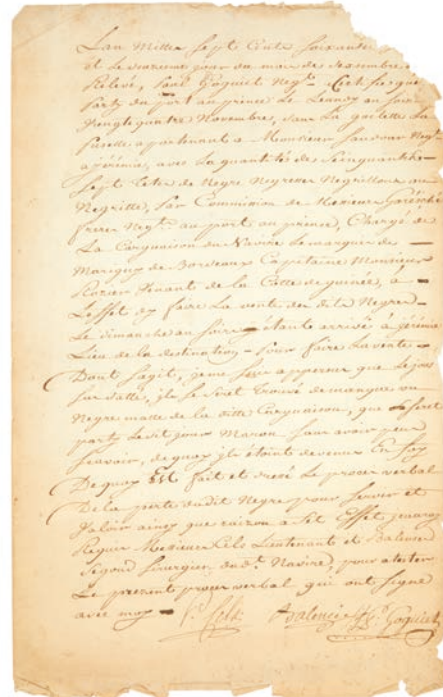 Lan Mille Sept Cents Soixante
et Le onzieme jour du mois de decembre
Relevé, Paul Goguet Neg.t
Party du port au prince Le
Vingt quatre Novembre, sur La goilette La
apartenant a Monsieur Neg.t
a jérémie, avec La quantités de Cinquante
Sept Tetes de Negre Negresses Negrillons ou
Negritte, Par Commission de Messieurs
freres Neg.ts au port au prince, Chargé de
La Cargaison du Navire Le marquis de
Marigny de Bordeaux Capitaine Monsieur
Rozier Venant de la Cotte de guinée, à
Leffet dy faire La vente des dits Negres
Le dimanche au soir étant arrivé à jérémie
Lieu de la destination, Pour faire La vente
Dont sagit, je me suis apperçu que
il se seroit trouvé de manque un
Negre malle de la ditte Cargaison, que seroit
party le dit jour Maron sans avoir peu
Scavoir, de quoy il étoit devenu En foy
De quoy Est fait et dressé Le proces verbal
De la perte du dit Negre pour servir et
Valoir ainsy que raizon a Set Effet
Requis Messieurs Cels Lieutenant et Balensé
Segond Sirurgien du d.t Navire, pour atester
Le present proces verbal qui ont signé
avec moy Cels Balensé Goguet